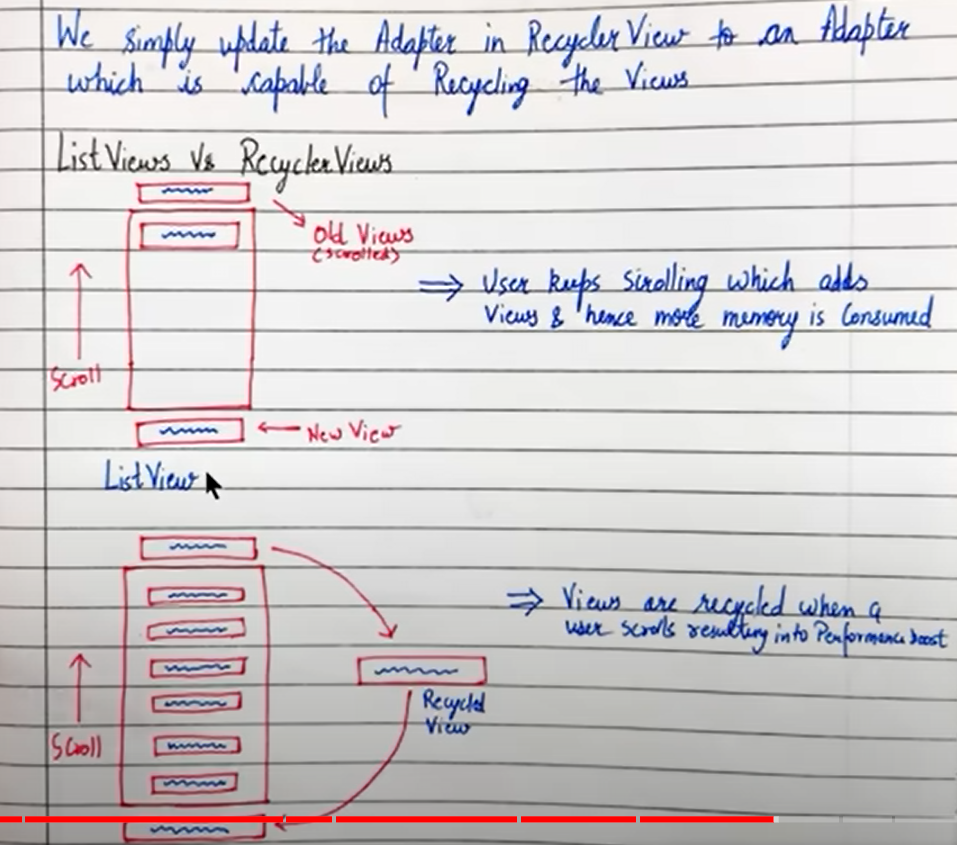 We simply update the Adapter in RecyclerView to an Adapter
which is capable of Recycling the Views
ListViews Vs RecyclerViews
Old Views
(scrolled)
Scroll
⇒ User keeps scrolling which adds
Views & hence more memory is Consumed
New View
ListView
⇒ Views are recycled when a
user scrolls resulting into Performance boost
Scroll
Recycled
View